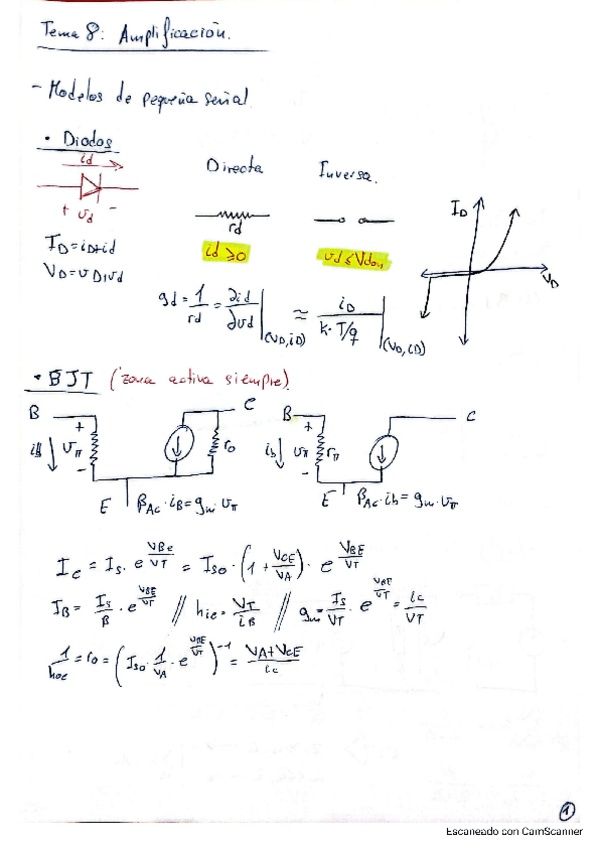 Tema 8: Amplificación.
- Modelos de pequeña señal.
• Diodos
id
+ vd -
Directa
Inversa.
rd
id ≥ 0
vd ≤ Vdon
ID
VD
ID = iD+id
VD = vD+vd
gd = 1/rd = ∂id/∂vd |(VD,iD) ≈ iD/(k·T/q) |(VD,iD)
• BJT (zona activa siempre).
B
C
B
C
+
+
iB
vπ
ro
ib
vπ
rπ
-
-
E
βAC·iB = gm·vπ
E
βAC·ib = gm·vπ
Ic = Is·e^(VBE/VT) = Iso·(1+VCE/VA)·e^(VBE/VT)
IB = Is/β·e^(VBE/VT) // hie = VT/iB // gm = Is/VT·e^(VBE/VT) = ic/VT
1/hoe = ro = (Iso·1/VA·e^(VBE/VT))^-1 = (VA+VCE)/ic
1
Escaneado con CamScanner